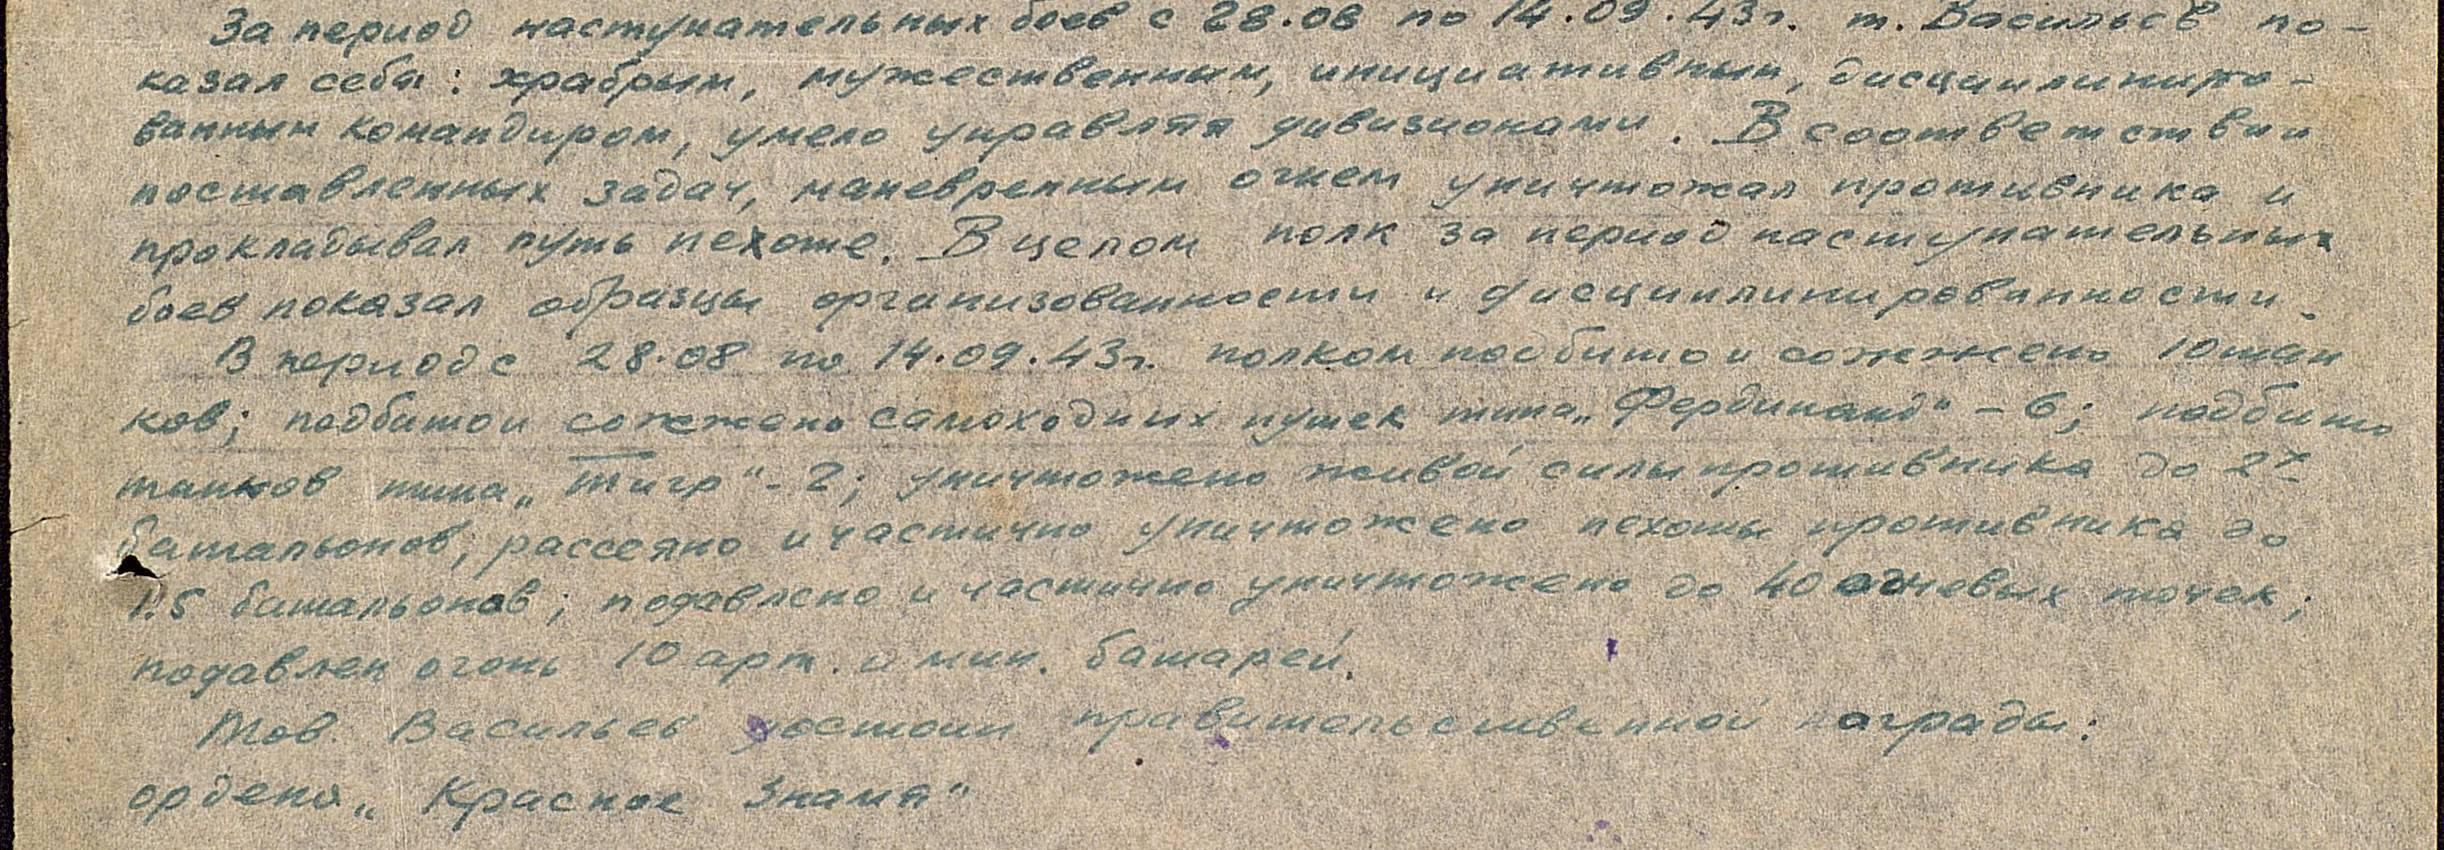 За период наступательных боев с 28.08 по 14.09.43г. т. Васильев по-
казал себя: храбрым, мужественным, инициативным, дисциплиниро-
ванным командиром, умело управляя дивизионами. В соответствии
поставленных задач, маневренным огнем уничтожал противника и
прокладывал путь пехоте. В целом полк за период наступательных
боев показал образцы организованности и дисциплинированности.
В период с 28.08 по 14.09.43г. полком подбито и сожжено 10 тан
ков; подбито и сожжено самоходных пушек типа „Фердинанд" - 6; подбито
танков типа „Тигр" - 2; уничтожено живой силы противника до 2х
батальонов; рассеяно и частично уничтожено пехоты противника до
1.5 батальонов; подавлено и частично уничтожено до 40 огневых точек;
подавлен огонь 10 арт. и мин. батарей.
Тов. Васильев достоин правительственной награды:
ордена „Красное Знамя"